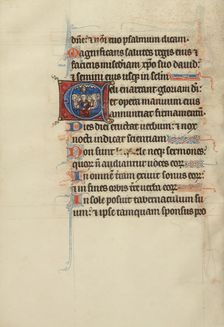 dñe: et noĩ tuo psalmum dicam.
Magnificans salutes regis eius et
faciens miscdiam xpo suo dauid:
et semini eius usqꝫ in sclm
Celi enarrant gloriam di
et opera manuum eius
annuntiat firmamentum
Dies diei eructat uerbum: et nox
nocti indicat scientiam
Non sunt loquele neqꝫ sermones:
quoꝝ ñ audiantur uoces eoꝝ
In omnem terram exiuit sonus eoꝝ:
et in fines orbis tre uerba eoꝝ
In sole posuit tabernaculum su
um: et ipse tamquam sponsus pro